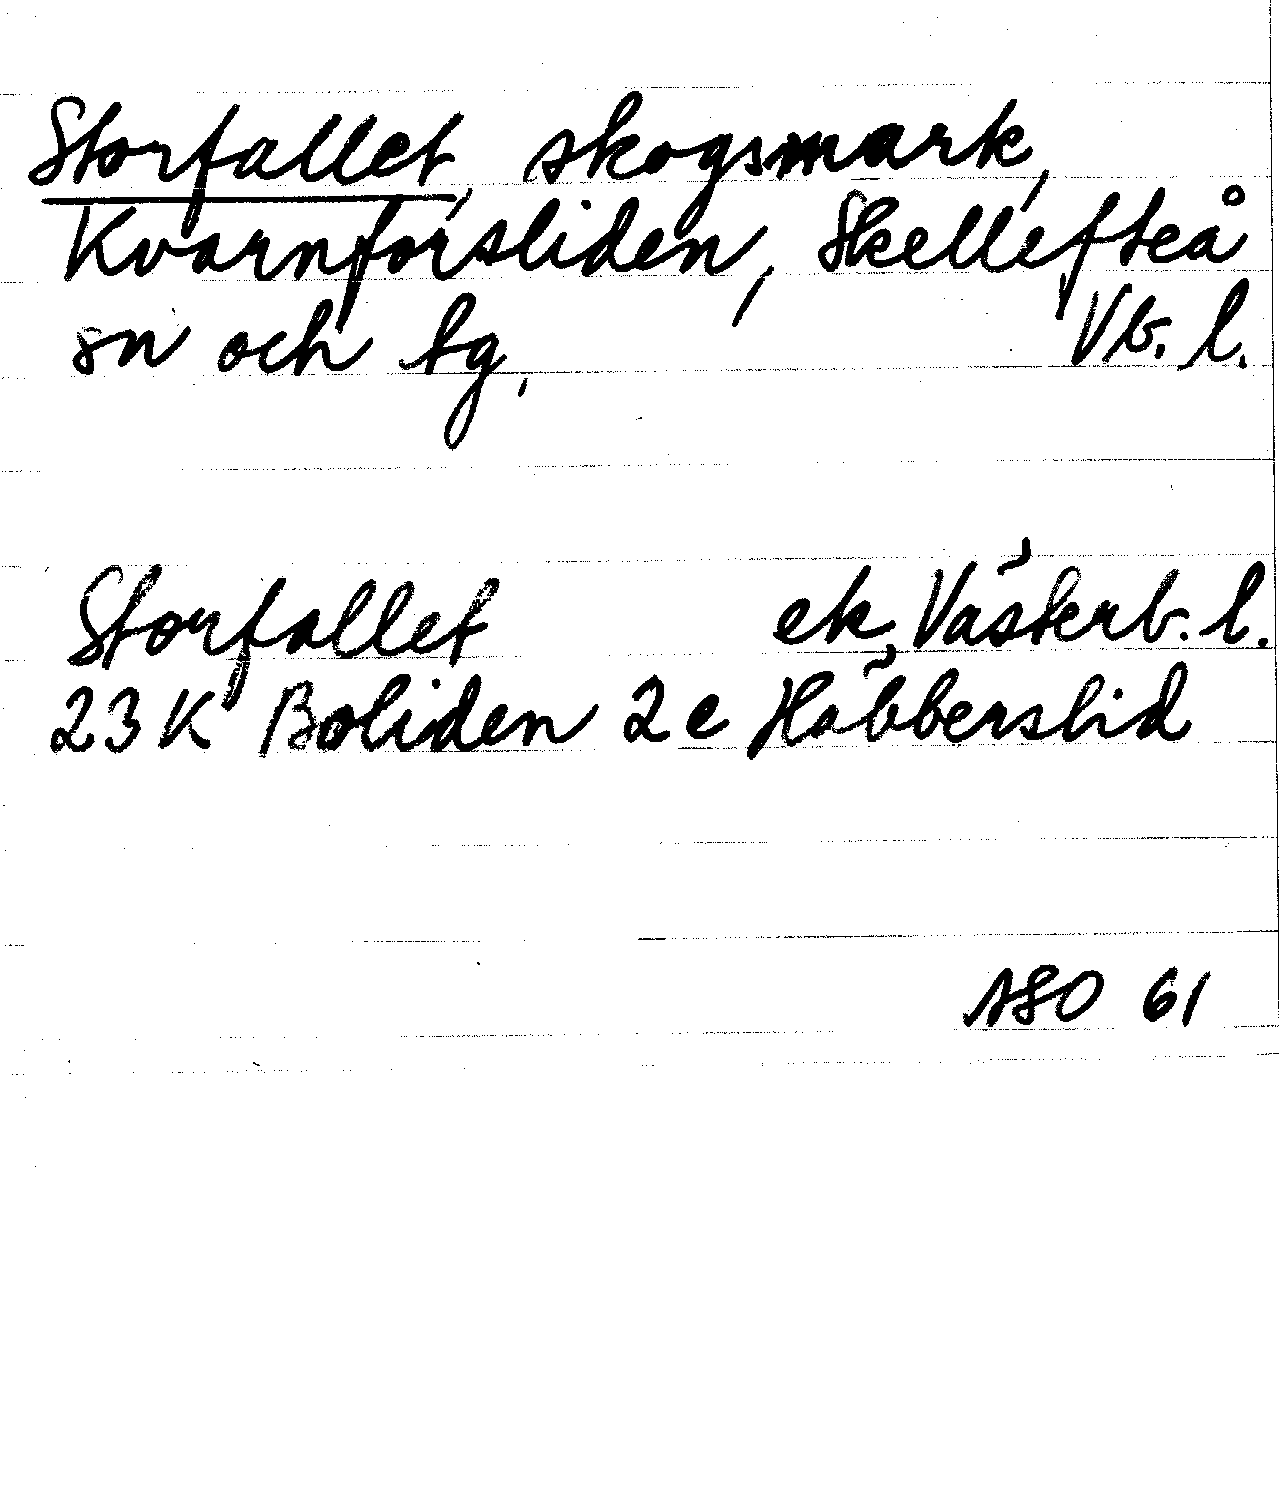 Storfallet, skogsmark,
Kvarnforsliden, Skellefteå
sn och tg, Vb. l.
Storfallet ek, Västerb. l.
23 K Boliden 2 e Häbbersliid
ASO 61